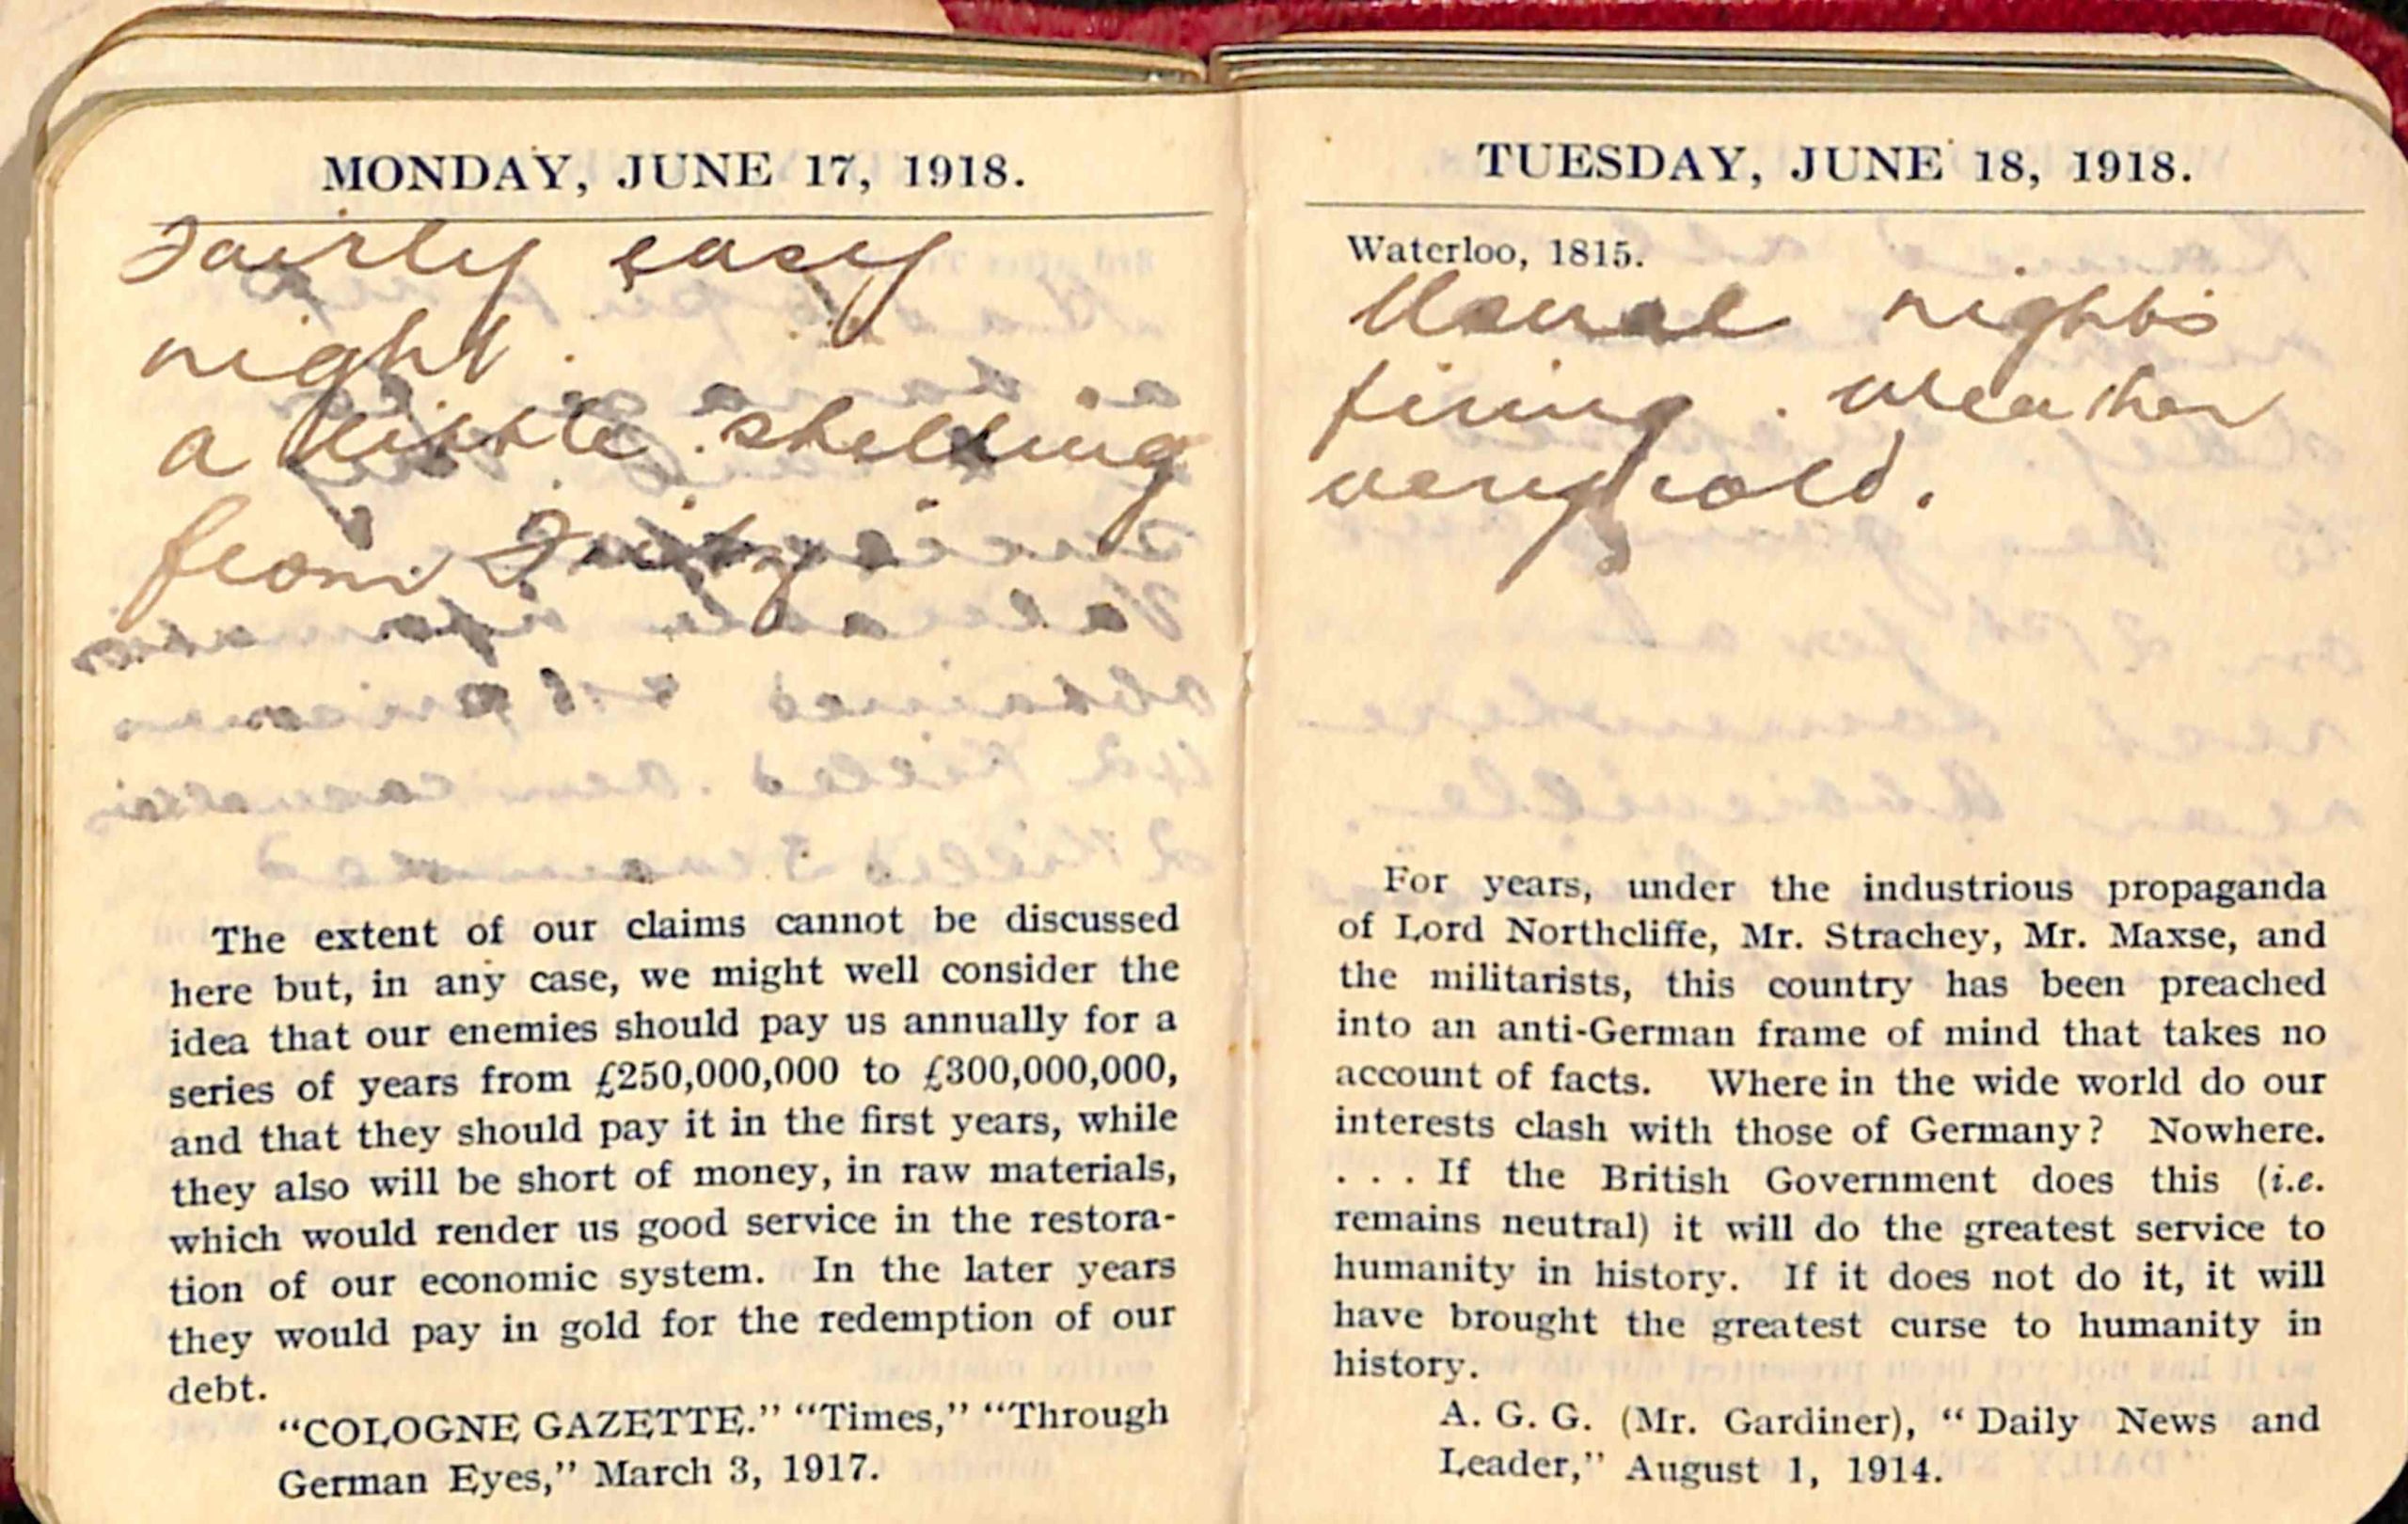 MONDAY, JUNE 17, 1918.
Fairly easy
night.
a little shelling
from Fritz
The extent of our claims cannot be discussed
here but, in any case, we might well consider the
idea that our enemies should pay us annually for a
series of years from £250,000,000 to £300,000,000,
and that they should pay it in the first years, while
they also will be short of money, in raw materials,
which would render us good service in the restora-
tion of our economic system. In the later years
they would pay in gold for the redemption of our
debt.
"COLOGNE GAZETTE." "Times," "Through
German Eyes," March 3, 1917.
TUESDAY, JUNE 18, 1918.
Waterloo, 1815.
Usual nights
firing. weather
very cold.
For years, under the industrious propaganda
of Lord Northcliffe, Mr. Strachey, Mr. Maxse, and
the militarists, this country has been preached
into an anti-German frame of mind that takes no
account of facts. Where in the wide world do our
interests clash with those of Germany? Nowhere.
. . . If the British Government does this (i.e.
remains neutral) it will do the greatest service to
humanity in history. If it does not do it, it will
have brought the greatest curse to humanity in
history.
A. G. G. (Mr. Gardiner), "Daily News and
Leader," August 1, 1914.